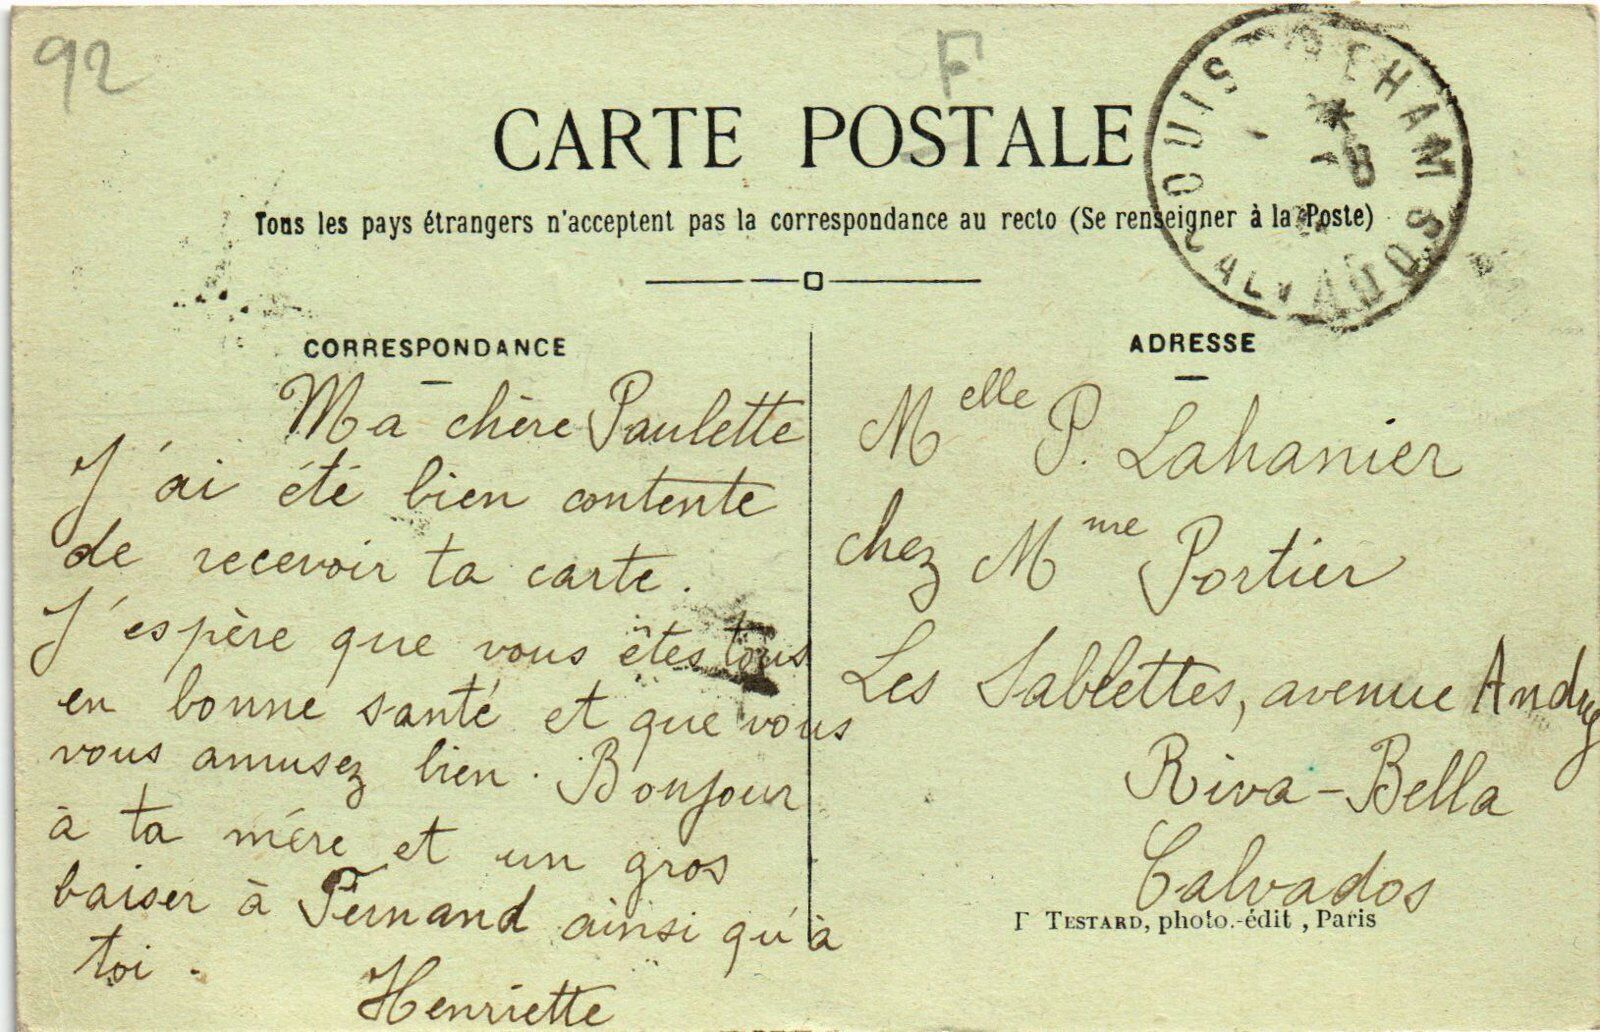 92
F
CARTE POSTALE
Tous les pays étrangers n'acceptent pas la correspondance au recto (Se renseigner à la Poste)
OUISTREHAM
8
CALVADOS
CORRESPONDANCE
Ma chère Paulette
J'ai été bien contente
de recevoir ta carte.
J'espère que vous êtes tous
en bonne santé et que vous
vous amusez bien. Bonjour
à ta mère et un gros
baiser à Fernand ainsi qu'à
toi.
Henriette
ADRESSE
Melle P. Lahanier
chez Mme Portier
Les Sablettes, avenue Andry
Riva-Bella
Calvados
TESTARD, photo.-édit, Paris